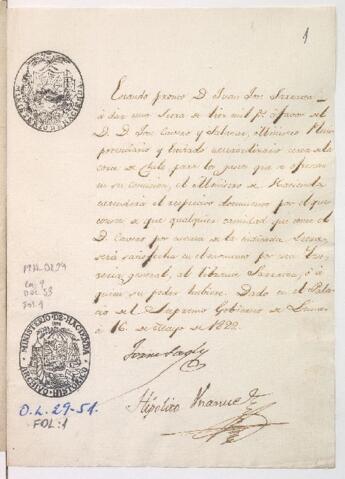 1
MINISTERIO DE HACIENDA
Estando pronto D. Juan José Sarratea
á dar una letra de diez mil p.s á favor del
D. D. José Cavero y Salazar, Ministro Pleni
potenciario y Enviado extraordinario cerca de la
corte de Chile para los gastos que se ofrescan
en su comision, el Ministro de Hacienda
extenderá el respectivo documento por el que
conste que qualquiera cantidad que tome el
D. Cavero por cuenta de la indicada letra,
será satisfecha en el momento por esta Teso
reria general, al Sarratea, ó á
quien su poder hubiere. Dado en el Pala
cio del Supremo Gobierno de Lima
á 16 de Mayo de 1822.
Torre Tagle
Hipólito Unanue
MINISTERIO-DE-HACIENDA
ARCHIVO-HISTORICO
O.L. 29-51.
FOL:1